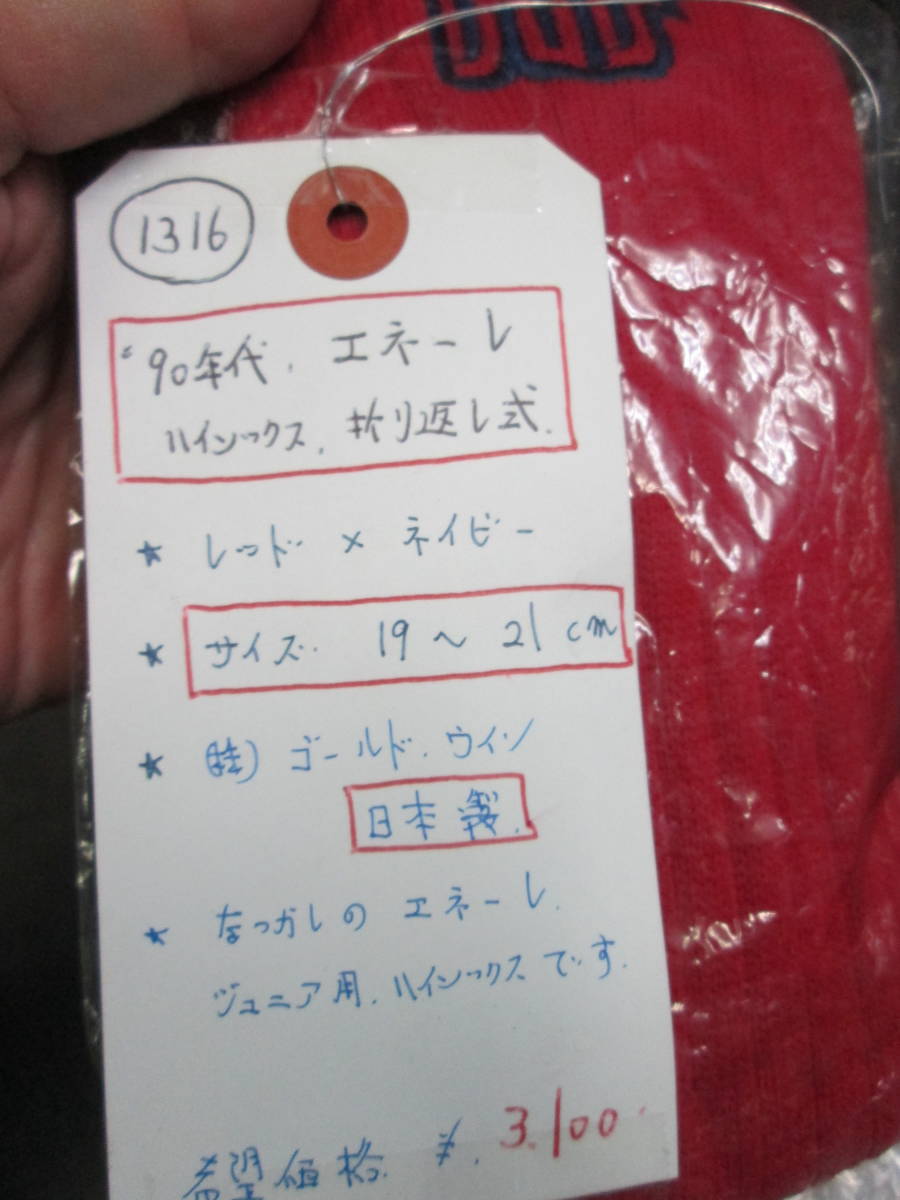 1316
'90年代. エネーレ
ハイソックス. 折り返し式.
★ レッド × ネイビー
★ サイズ. 19 〜 21 cm
★ ㈱ ゴールド.ウイン
日本製.
★ なつかしの エネーレ.
ジュニア用.ハイソックスです.
希望価格. ¥. 3.100